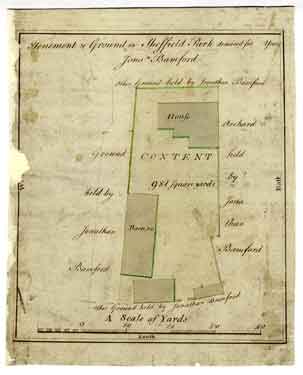 Tenement & Ground in Sheffield Park demised for Years
Jonn. Bamford
Other Ground held by Jonathan Bamford
House
Orchard
Ground
CONTENT
held
981 Square yards
by
held by
Jona
than
Jonathan
Bamford
Bamford
Other Ground held by Jonathan Bamford
A Scale of Yards
0 10 20 30 40
South